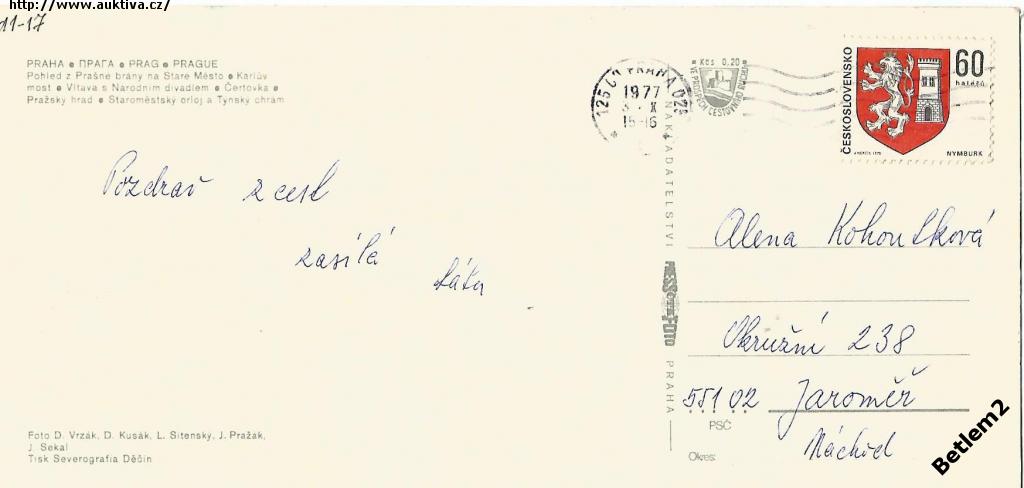 http://www.auktiva.cz/
d1-17
PRAHA ● ПРАГА ● PRAG ● PRAGUE
Pohled z Prašné brány na Staré Město ● Karlův
most ● Vltava s Národním divadlem ● Čertovka ●
Pražský hrad ● Staroměstský orloj a Týnský chrám
Pozdrav z cest
zasílá
táta
Foto D. Vrzák, D. Kusák, L. Sitenský, J. Pražák,
J. Sekal
Tisk Severografia Děčín
PRAHA 025
1977
X
15-16
Kčs 0,20
NAKLADATELSTVÍ
PRESSFOTO
PRAHA
ČESKOSLOVENSKO
60
haléřů
NYMBURK
Alena Kohoutková
Okružní 238
551 02 Jaroměř
PSČ
Náchod
Okres:
Betlem2